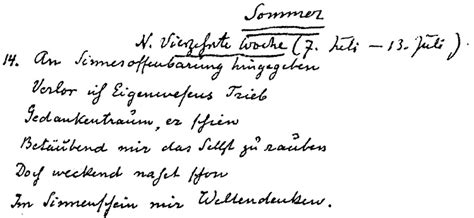 Sommer
N. Vierzehnte Woche (7. Juli – 13. Juli)
14. An Sinnesoffenbarung hingegeben
Verlor ich Eigenwesens Trieb
Gedankentraum, er schien
Betäubend mir das Selbst zu rauben
Doch weckend nahet schon
Im Sinnenschein mir Weltendenken.